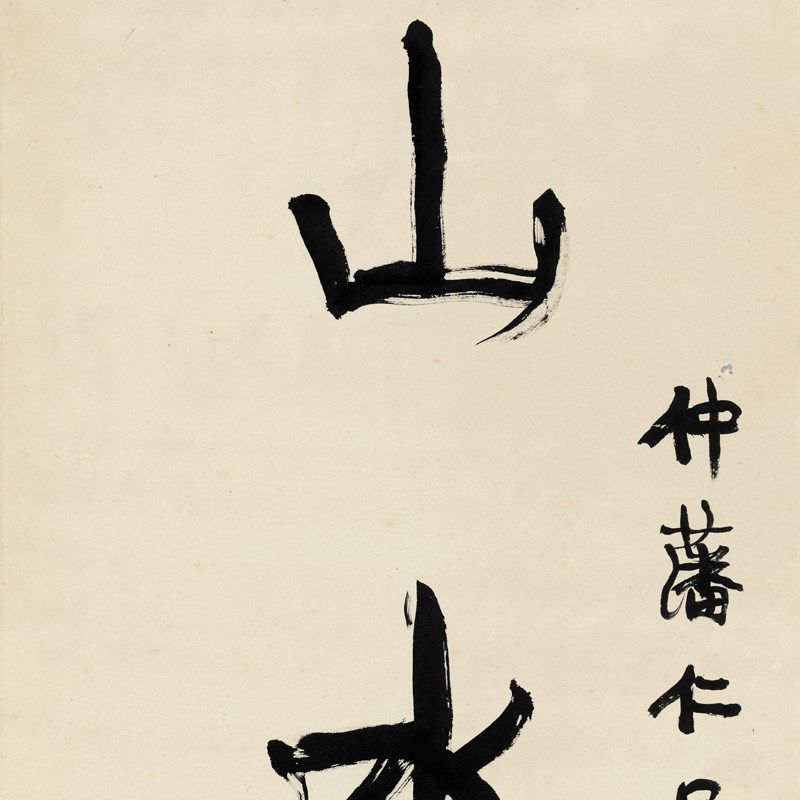 仲藩仁
山水